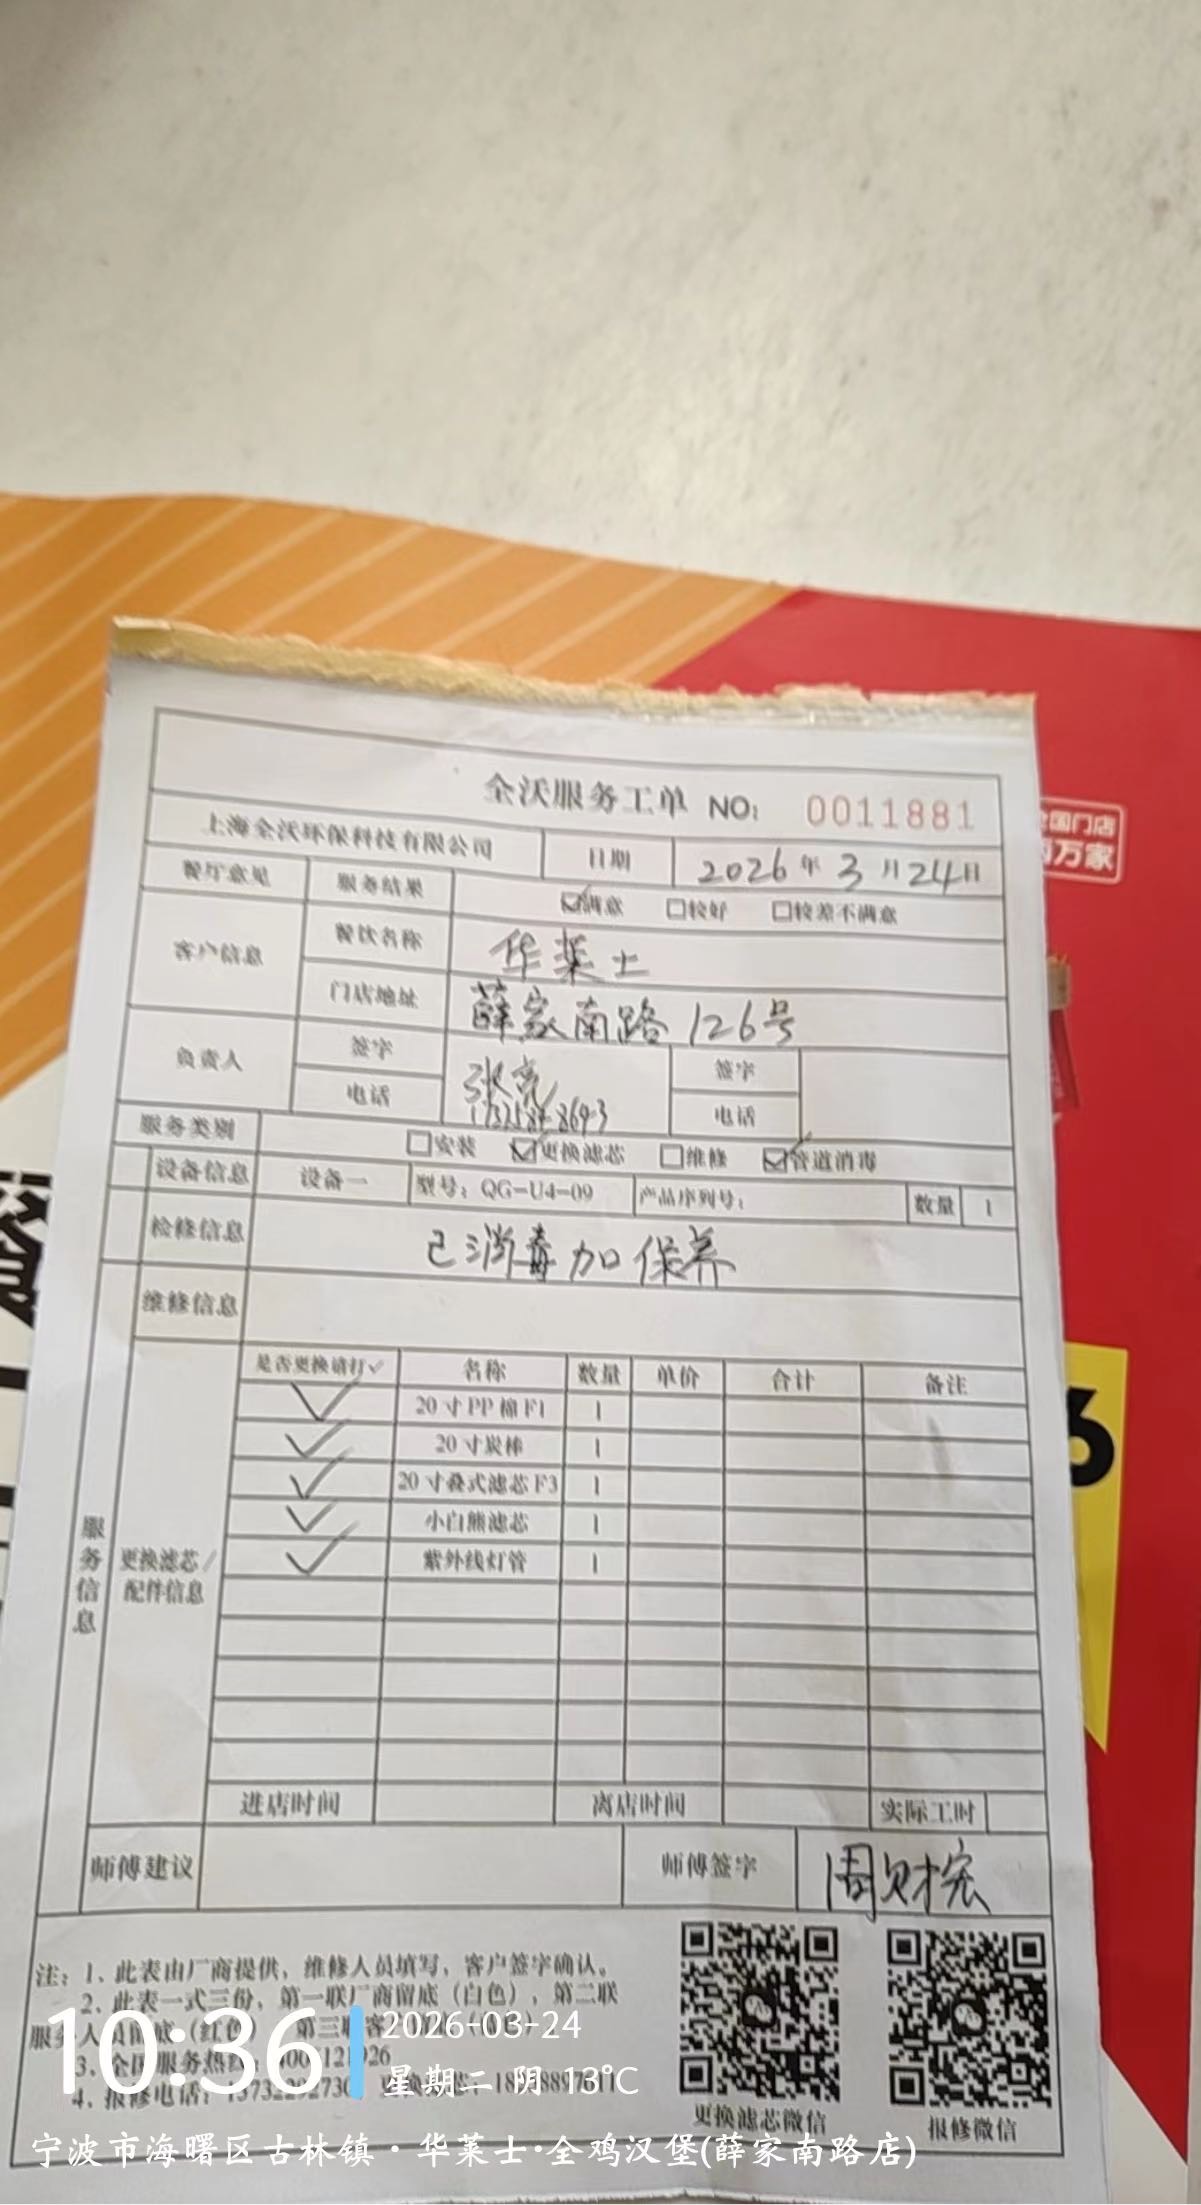 全国门店
两万家
全沃服务工单 NO: 0011881
上海全沃环保科技有限公司 日期 2026年3月24日
餐厅意见 服务结果 ☑满意 □较好 □较差不满意
客户信息 餐饮名称 华莱士
门店地址 薛家南路126号
负责人 签字 张亮 签字
电话 电话
服务类别 □安装 ☑更换滤芯 □维修 ☑管道消毒
设备信息 设备一 型号: QG-U4-09 产品序列号: 数量 1
检修信息 已消毒加保养
维修信息
服务信息
更换滤芯/配件信息
是否更换请打✓ 名称 数量 单价 合计 备注
✓ 20寸PP棉F1 1
✓ 20寸炭棒 1
✓ 20寸叠式滤芯F3 1
✓ 小白熊滤芯 1
✓ 紫外线灯管 1
进店时间 离店时间 实际工时
师傅建议 师傅签字 周财宏
注: 1、此表由厂商提供, 维修人员填写, 客户签字确认。
2、此表一式三份, 第一联厂商留底(白色), 第二联
服务人员留底(红色) 第三联客
3、全国服务热线:
4、报修电话:
更换滤芯微信 报修微信
6
10:36 2026-03-24
星期二 阴 13℃
宁波市海曙区古林镇·华莱士·全鸡汉堡(薛家南路店)